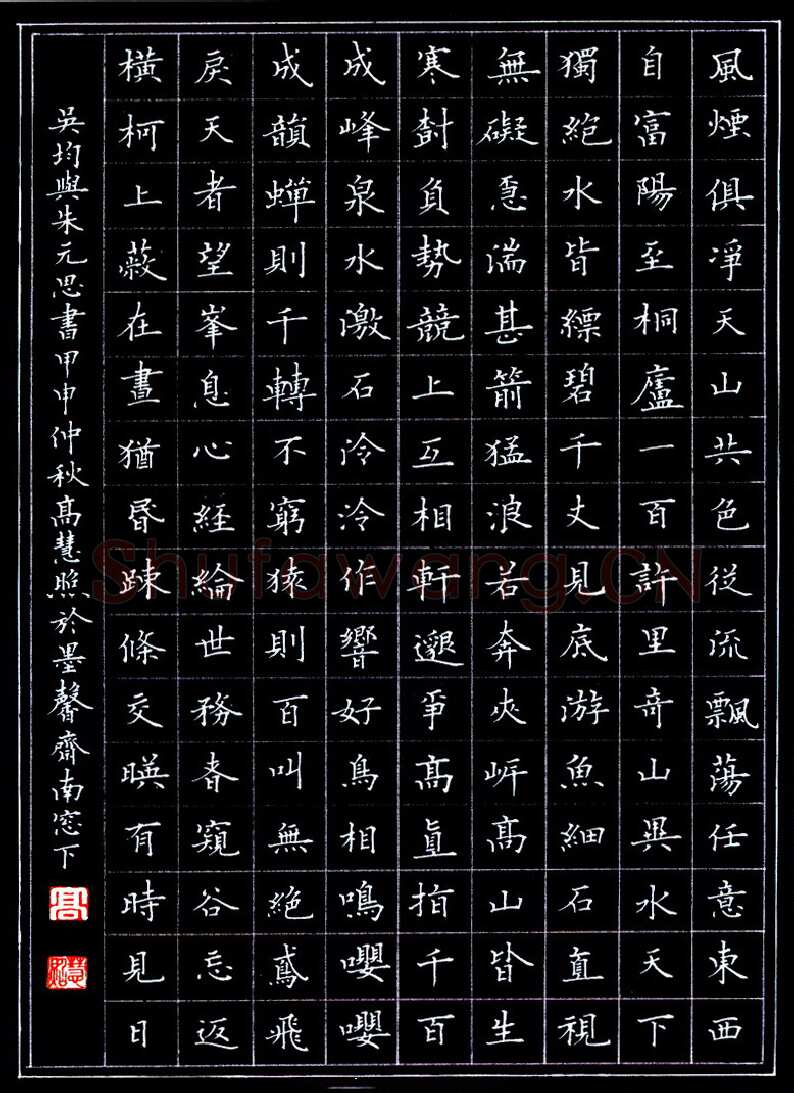 風煙俱凈天山共色從流飄蕩任意東西
自富陽至桐廬一百許里奇山異水天下
獨絕水皆縹碧千丈見底游魚細石直視
無礙急湍甚箭猛浪若奔夾岸高山皆生
寒樹負勢競上互相軒邈爭高直指千百
成峰泉水激石泠泠作響好鳥相鳴嚶嚶
成韻蟬則千轉不窮猿則百叫無絕鳶飛
戾天者望峯息心經綸世務春窺谷忘返
橫柯上蔽在晝猶昏疎條交暎有時見日
吳均與朱元思書甲申仲秋高慧照於墨馨齋南窓下
高
慧照
Shufawang.CN